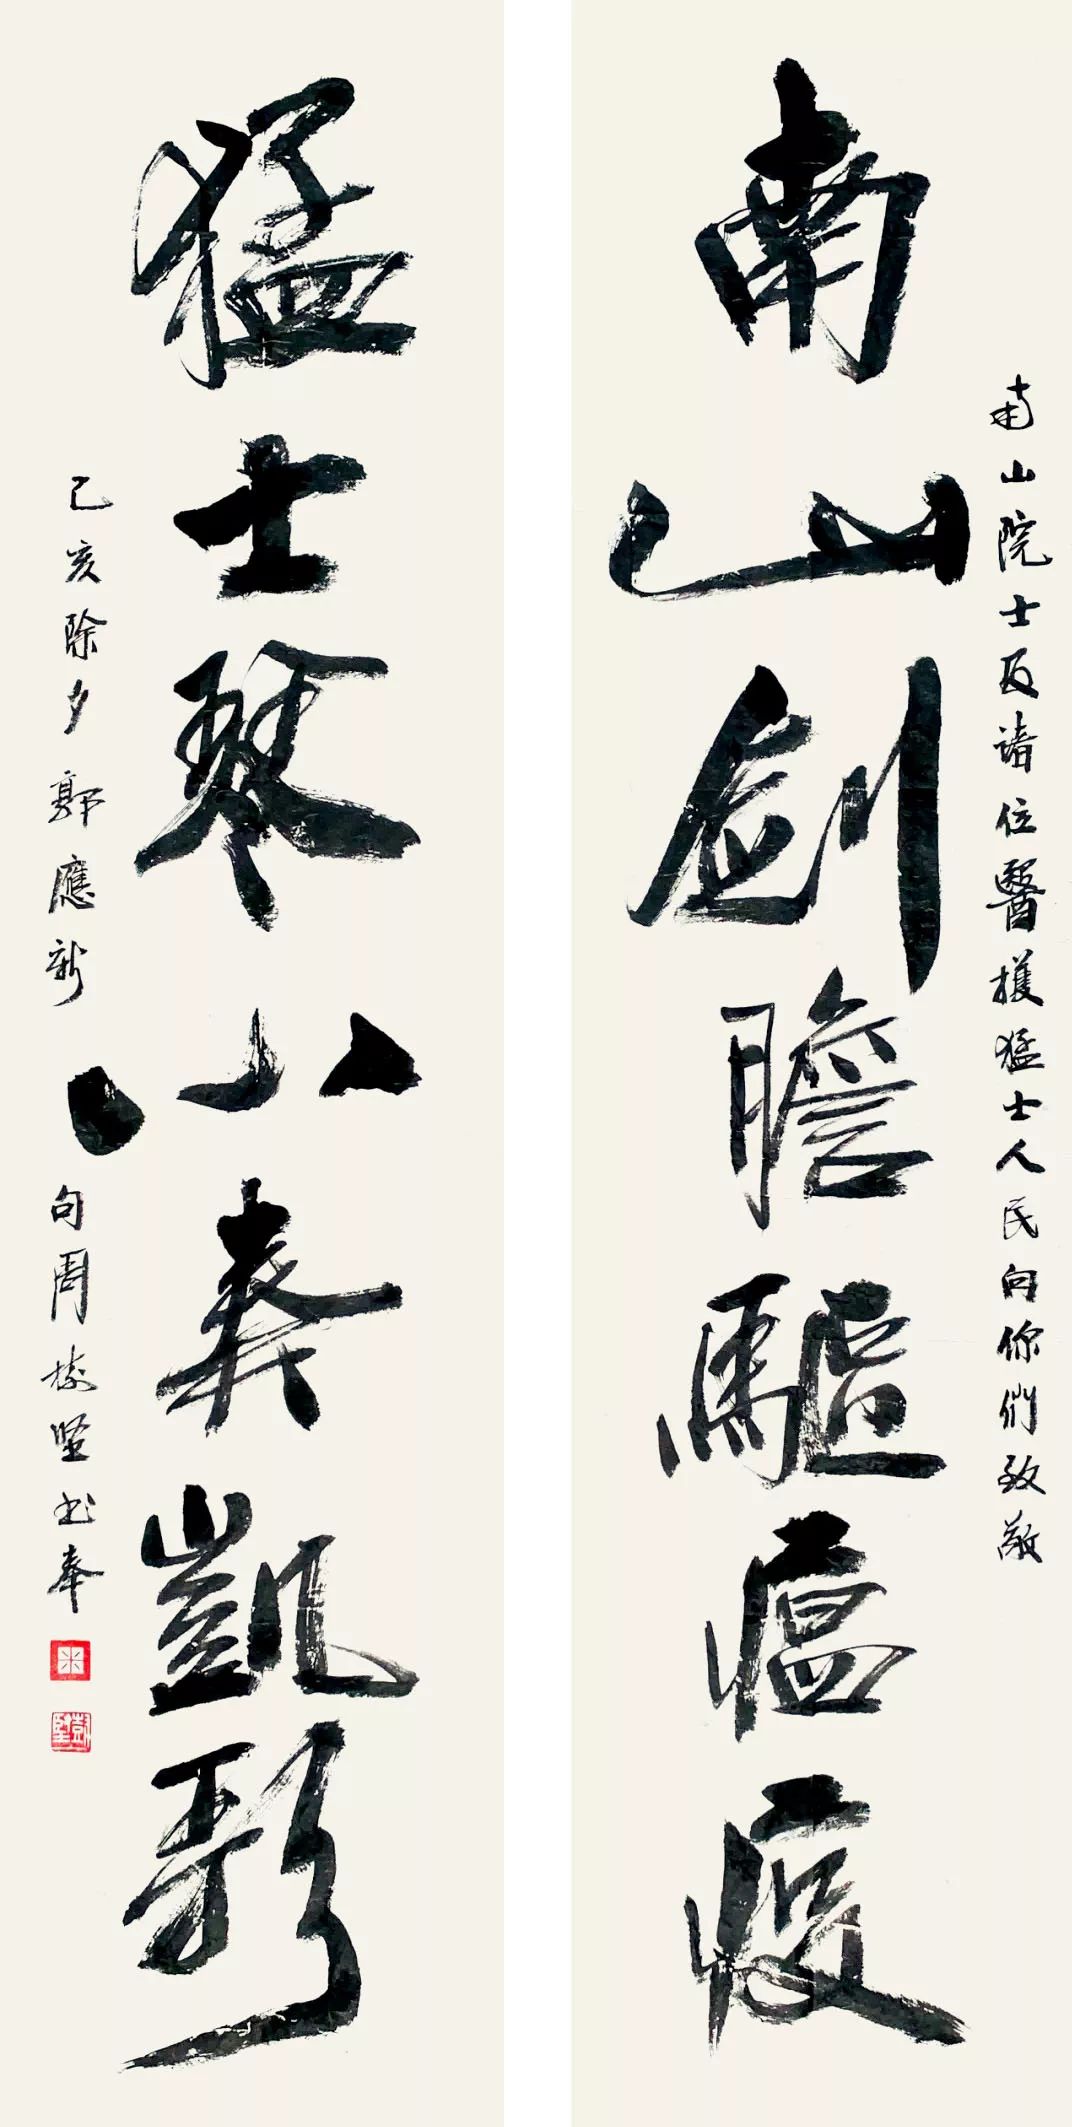 南山院士及諸位醫護猛士人民向你們致敬
南山劍膽驅瘟疫
猛士琴心奏凱歌
己亥除夕郭應新句周樹堅書奉
米